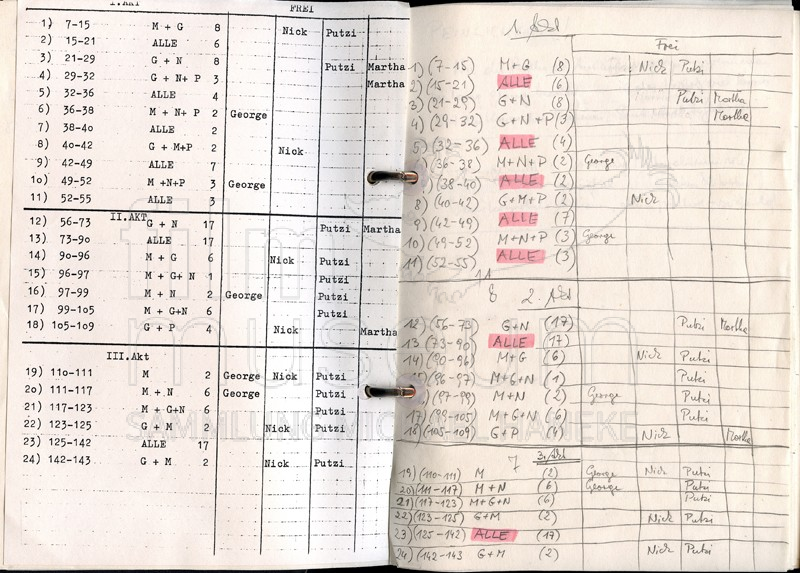 I.Akt FREI
1) 7-15 M + G 8 Nick Putzi
2) 15-21 ALLE 6
3) 21-29 G + N 8 Putzi Martha
4) 29-32 G + N+ P 3 Martha
5) 32-36 ALLE 4
6) 36-38 M + N+ P 2 George
7) 38-4o ALLE 2
8) 4o-42 G + M+P 2 Nick
9) 42-49 ALLE 7
1o) 49-52 M +N+P 3 George
11) 52-55 ALLE 3
II.AKT
12) 56-73 G + N 17 Putzi Martha
13) 73-9o ALLE 17
14) 9o-96 M + G 6 Nick Putzi
15) 96-97 M + G+ N 1 Putzi
16) 97-99 M + N 2 George Putzi
17) 99-1o5 M + G+N 6 Putzi
18) 1o5-1o9 G + P 4 Nick Martha
III.Akt
19) 11o-111 M 2 George Nick Putzi
2o) 111-117 M + N 6 George Putzi
21) 117-123 M + G+N 6 Putzi
22) 123-125 G + M 2 Nick Putzi
23) 125-142 ALLE 17
24) 142-143 G + M 2 Nick Putzi
1. Akt
Frei
1) (7-15) M+G (8) Nick Putzi
2) (15-21) ALLE (6)
3) (21-29) G+N (8) Putzi Martha
4) (29-32) G+N+P (3) Martha
5) (32-36) ALLE (4)
) (36-38) M+N+P (2) George
) (38-40) ALLE (2)
8) (40-42) G+M+P (2) Nick
9) (42-49) ALLE (7)
10) (49-52) M+N+P (3) George
11) (52-55) ALLE (3)
11
8 2. Akt
12) (56-73) G+N (17) Putzi Martha
13 (73-90) ALLE (17)
14) (90-96) M+G (6) Nick Putzi
15) (96-97) M+G+N (1) Putzi
(97-99) M+N (2) George Putzi
17) (99-105) M+G+N (6) Putzi
18) (105-109) G+P (4) Nick Martha
7 3. Akt
19) (110-111) M (2) George Nick Putzi
20) (111-117) M+N (6) George Putzi
21) (117-123) M+G+N (6) Putzi
22) (123-125) G+M (2) Nick Putzi
23) (125-142) ALLE (17)
24) (142-143 G+M (2) Nick Putzi
film
museum